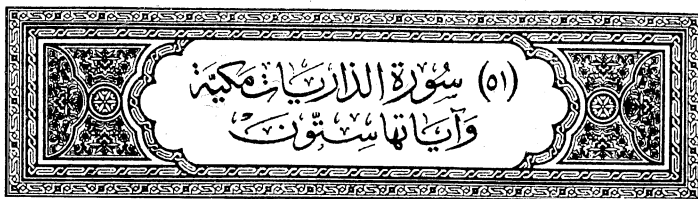 (٥١) سُورَة الذاريَات مَكيَّة
وَآيَاتهَا سِتُّونَ